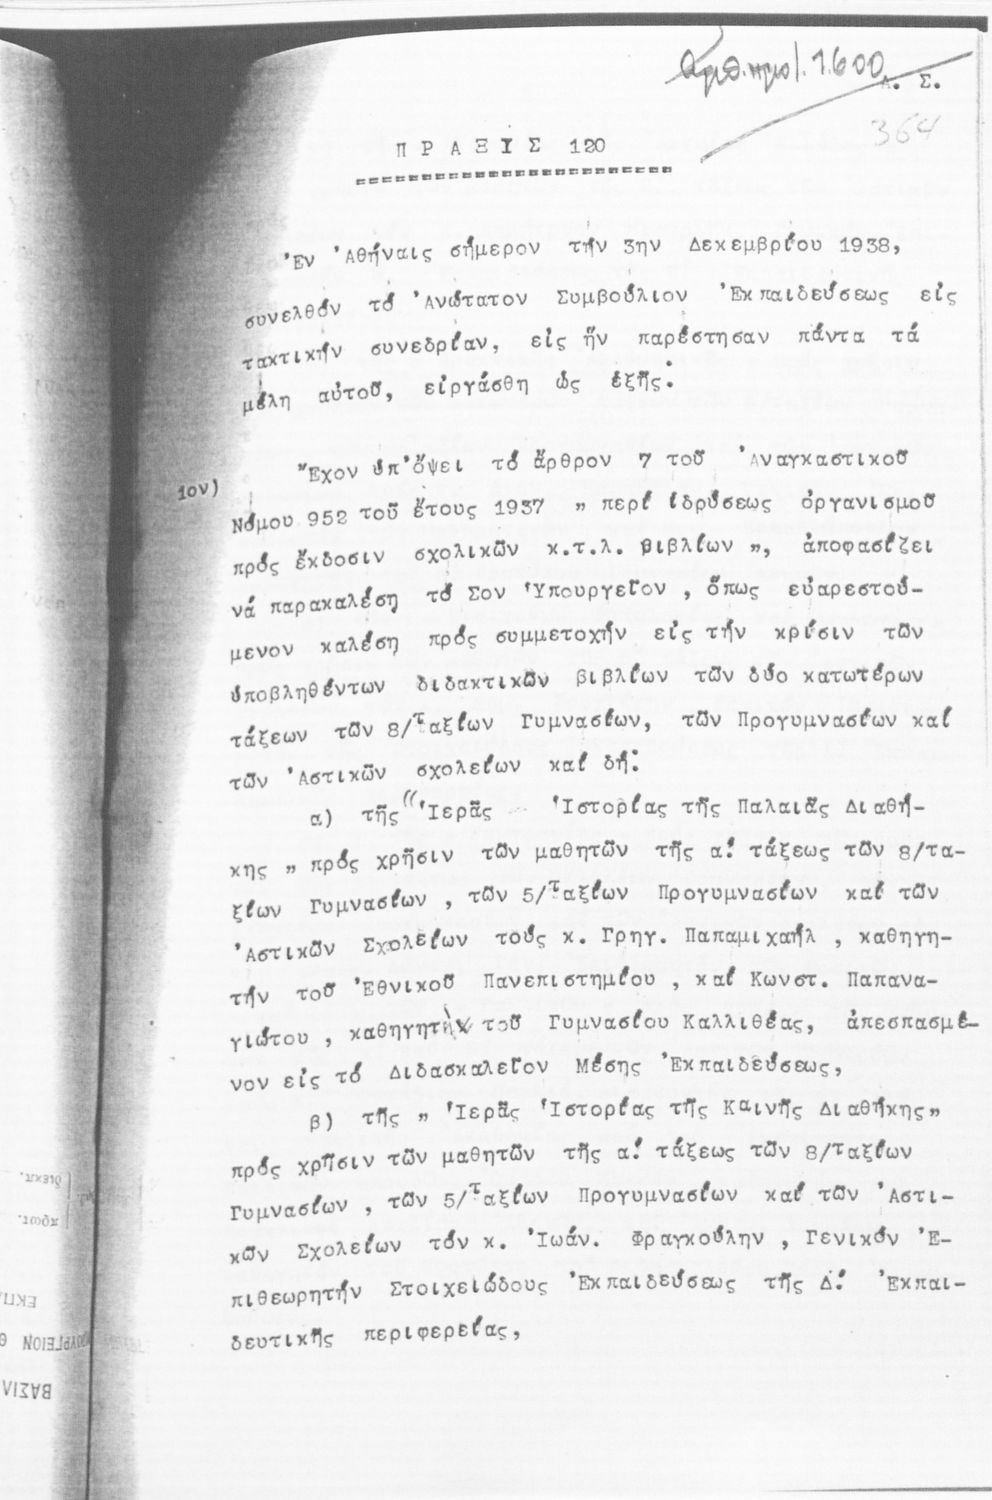 Ἀριθ. πρωτ. 1600
Α. Σ.
364
ΠΡΑΞΙΣ 120
Ἐν Ἀθήναις σήμερον τήν 3ην Δεκεμβρίου 1938,
συνελθόν τό Ἀνώτατον Συμβούλιον Ἐκπαιδεύσεως εἰς
τακτικήν συνεδρίαν, εἰς ἥν παρέστησαν πάντα τά
μέλη αὐτοῦ, εἰργάσθη ὡς ἑξῆς:
1ον) Ἔχον ὑπ' ὄψει τό ἄρθρον 7 τοῦ Ἀναγκαστικοῦ
Νόμου 952 τοῦ ἔτους 1937 „ περί ἱδρύσεως ὀργανισμοῦ
πρός ἔκδοσιν σχολικῶν κ.τ.λ. βιβλίων „, ἀποφασίζει
νά παρακαλέσῃ τό Σον Ὑπουργεῖον , ὅπως εὐαρεστού-
μενον καλέσῃ πρός συμμετοχήν εἰς τήν κρίσιν τῶν
ὑποβληθέντων διδακτικῶν βιβλίων τῶν δύο κατωτέρων
τάξεων τῶν 8/ταξίων Γυμνασίων, τῶν Προγυμνασίων καί
τῶν Ἀστικῶν σχολείων καί δή:
α) τῆς "Ἱερᾶς Ἱστορίας τῆς Παλαιᾶς Διαθή-
κης „ πρός χρῆσιν τῶν μαθητῶν τῆς α! τάξεως τῶν 8/τα-
ξίων Γυμνασίων , τῶν 5/ταξίων Προγυμνασίων καί τῶν
Ἀστικῶν Σχολείων τούς κ. Γρηγ. Παπαμιχαήλ , καθηγη-
τήν τοῦ Ἐθνικοῦ Πανεπιστημίου , καί Κωνστ. Παπανα-
γιώτου , καθηγητὴν τοῦ Γυμνασίου Καλλιθέας, ἀπεσπασμέ-
νον εἰς τό Διδασκαλεῖον Μέσης Ἐκπαιδεύσεως,
β) τῆς „ Ἱερᾶς Ἱστορίας τῆς Καινῆς Διαθήκης„
πρός χρῆσιν τῶν μαθητῶν τῆς α! τάξεως τῶν 8/ταξίων
Γυμνασίων , τῶν 5/ταξίων Προγυμνασίων καί τῶν Ἀστι-
κῶν Σχολείων τόν κ. Ἰωάν. Φραγκούλην , Γενικόν Ἐ-
πιθεωρητήν Στοιχειώδους Ἐκπαιδεύσεως τῆς Δ! Ἐκπαι-
δευτικῆς περιφερείας,